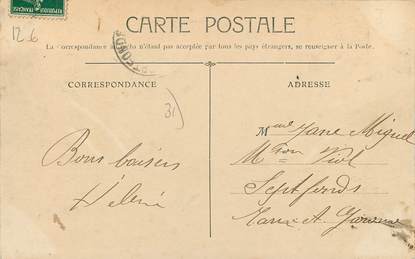 CARTE POSTALE
La Correspondance au recto n'étant pas acceptée par tous les pays étrangers, se renseigner à la Poste.
CORRESPONDANCE
ADRESSE
12 6
31)
Bons baisers
Hélène
Mme Jane Miquel
Mson Viol
Septfonds
Tarn et Garonne